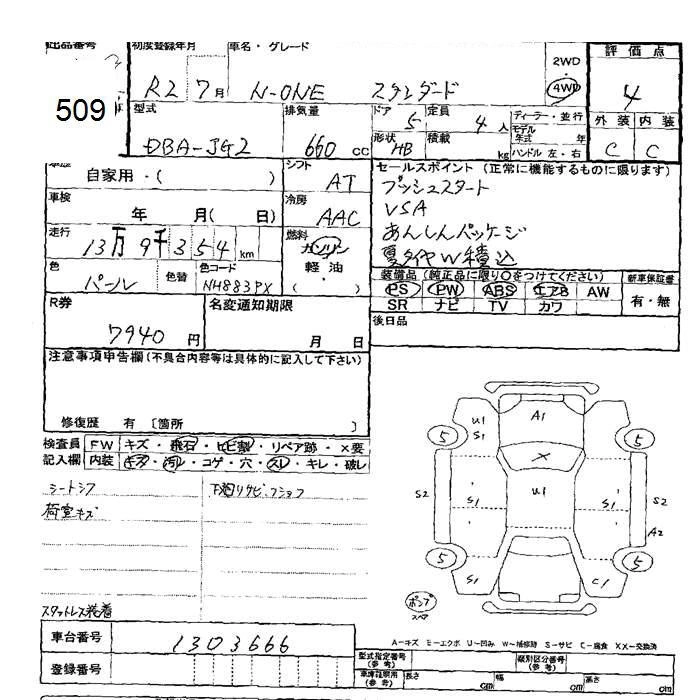 出品番号 初度登録年月 車名・グレード 評価点
509 R2 7月 N-ONE スタンダード 2WD 4WD 4
型式 排気量 ドア 5 定員 4人 ディーラー・並行 外装 内装
DBA-JG2 660 cc 形状 HB 積載 kg モデル年式 年 C C
ハンドル 左・右
車歴 自家用・( ) シフト AT セールスポイント (正常に機能するものに限ります)
プッシュスタート
車検 年 月( 日) 冷房 AAC VSA
あんしんパッケージ
走行 13万9千354km 燃料 ガソリン 軽油 ( ) 夏タイヤW積込
色 パール 色替 色コード NH883PX 装備品 (純正品に限り○をつけてください) 新車保証書
PS PW ABS エアB AW 有・無
R券 7940円 名変通知期限 月 日 SR ナビ TV カワ
後日品
注意事項申告欄(不具合内容等は具体的に記入して下さい)
修復歴 有 〔箇所 〕
検査員 FW キズ・飛石・ヒビ割・リペア跡・X要
記入欄 内装 キズ・汚レ・コゲ・穴・スレ・キレ・破レ
シートシワ 下廻りサビ・フショク
荷室キズ
スタットレス装着
U1 S1 A1
5 5
X
S2 S1 U1 S1 S2
A2
5 5
S1 C1
ポンプ
スペア
A-キズ E-エクボ U-凹み W-補修跡 S-サビ C-腐食 XX-交換済
車台番号 1303666
登録番号
型式指定番号 (参考) 類別区分番号 (参考)
車庫証明用 (参考) 長さ cm 幅 cm 高さ cm